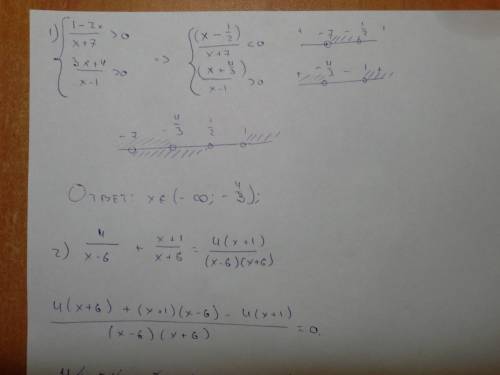 1) { (1-2x)/(x+7) > 0 => { (x-1/2)/(x+7) < 0 + -7 - 1/2 +
{ (3x+4)/(x-1) > 0 { (x+4/3)/(x-1) > 0 + -4/3 - 1 +
-7 -4/3 1/2 1
Ответ: x∈(-∞; -4/3);
2) 4/(x-6) + (x+1)/(x+6) = 4(x+1)/((x-6)(x+6))
(4(x+6) + (x+1)(x-6) - 4(x+1))/((x-6)(x+6)) = 0.